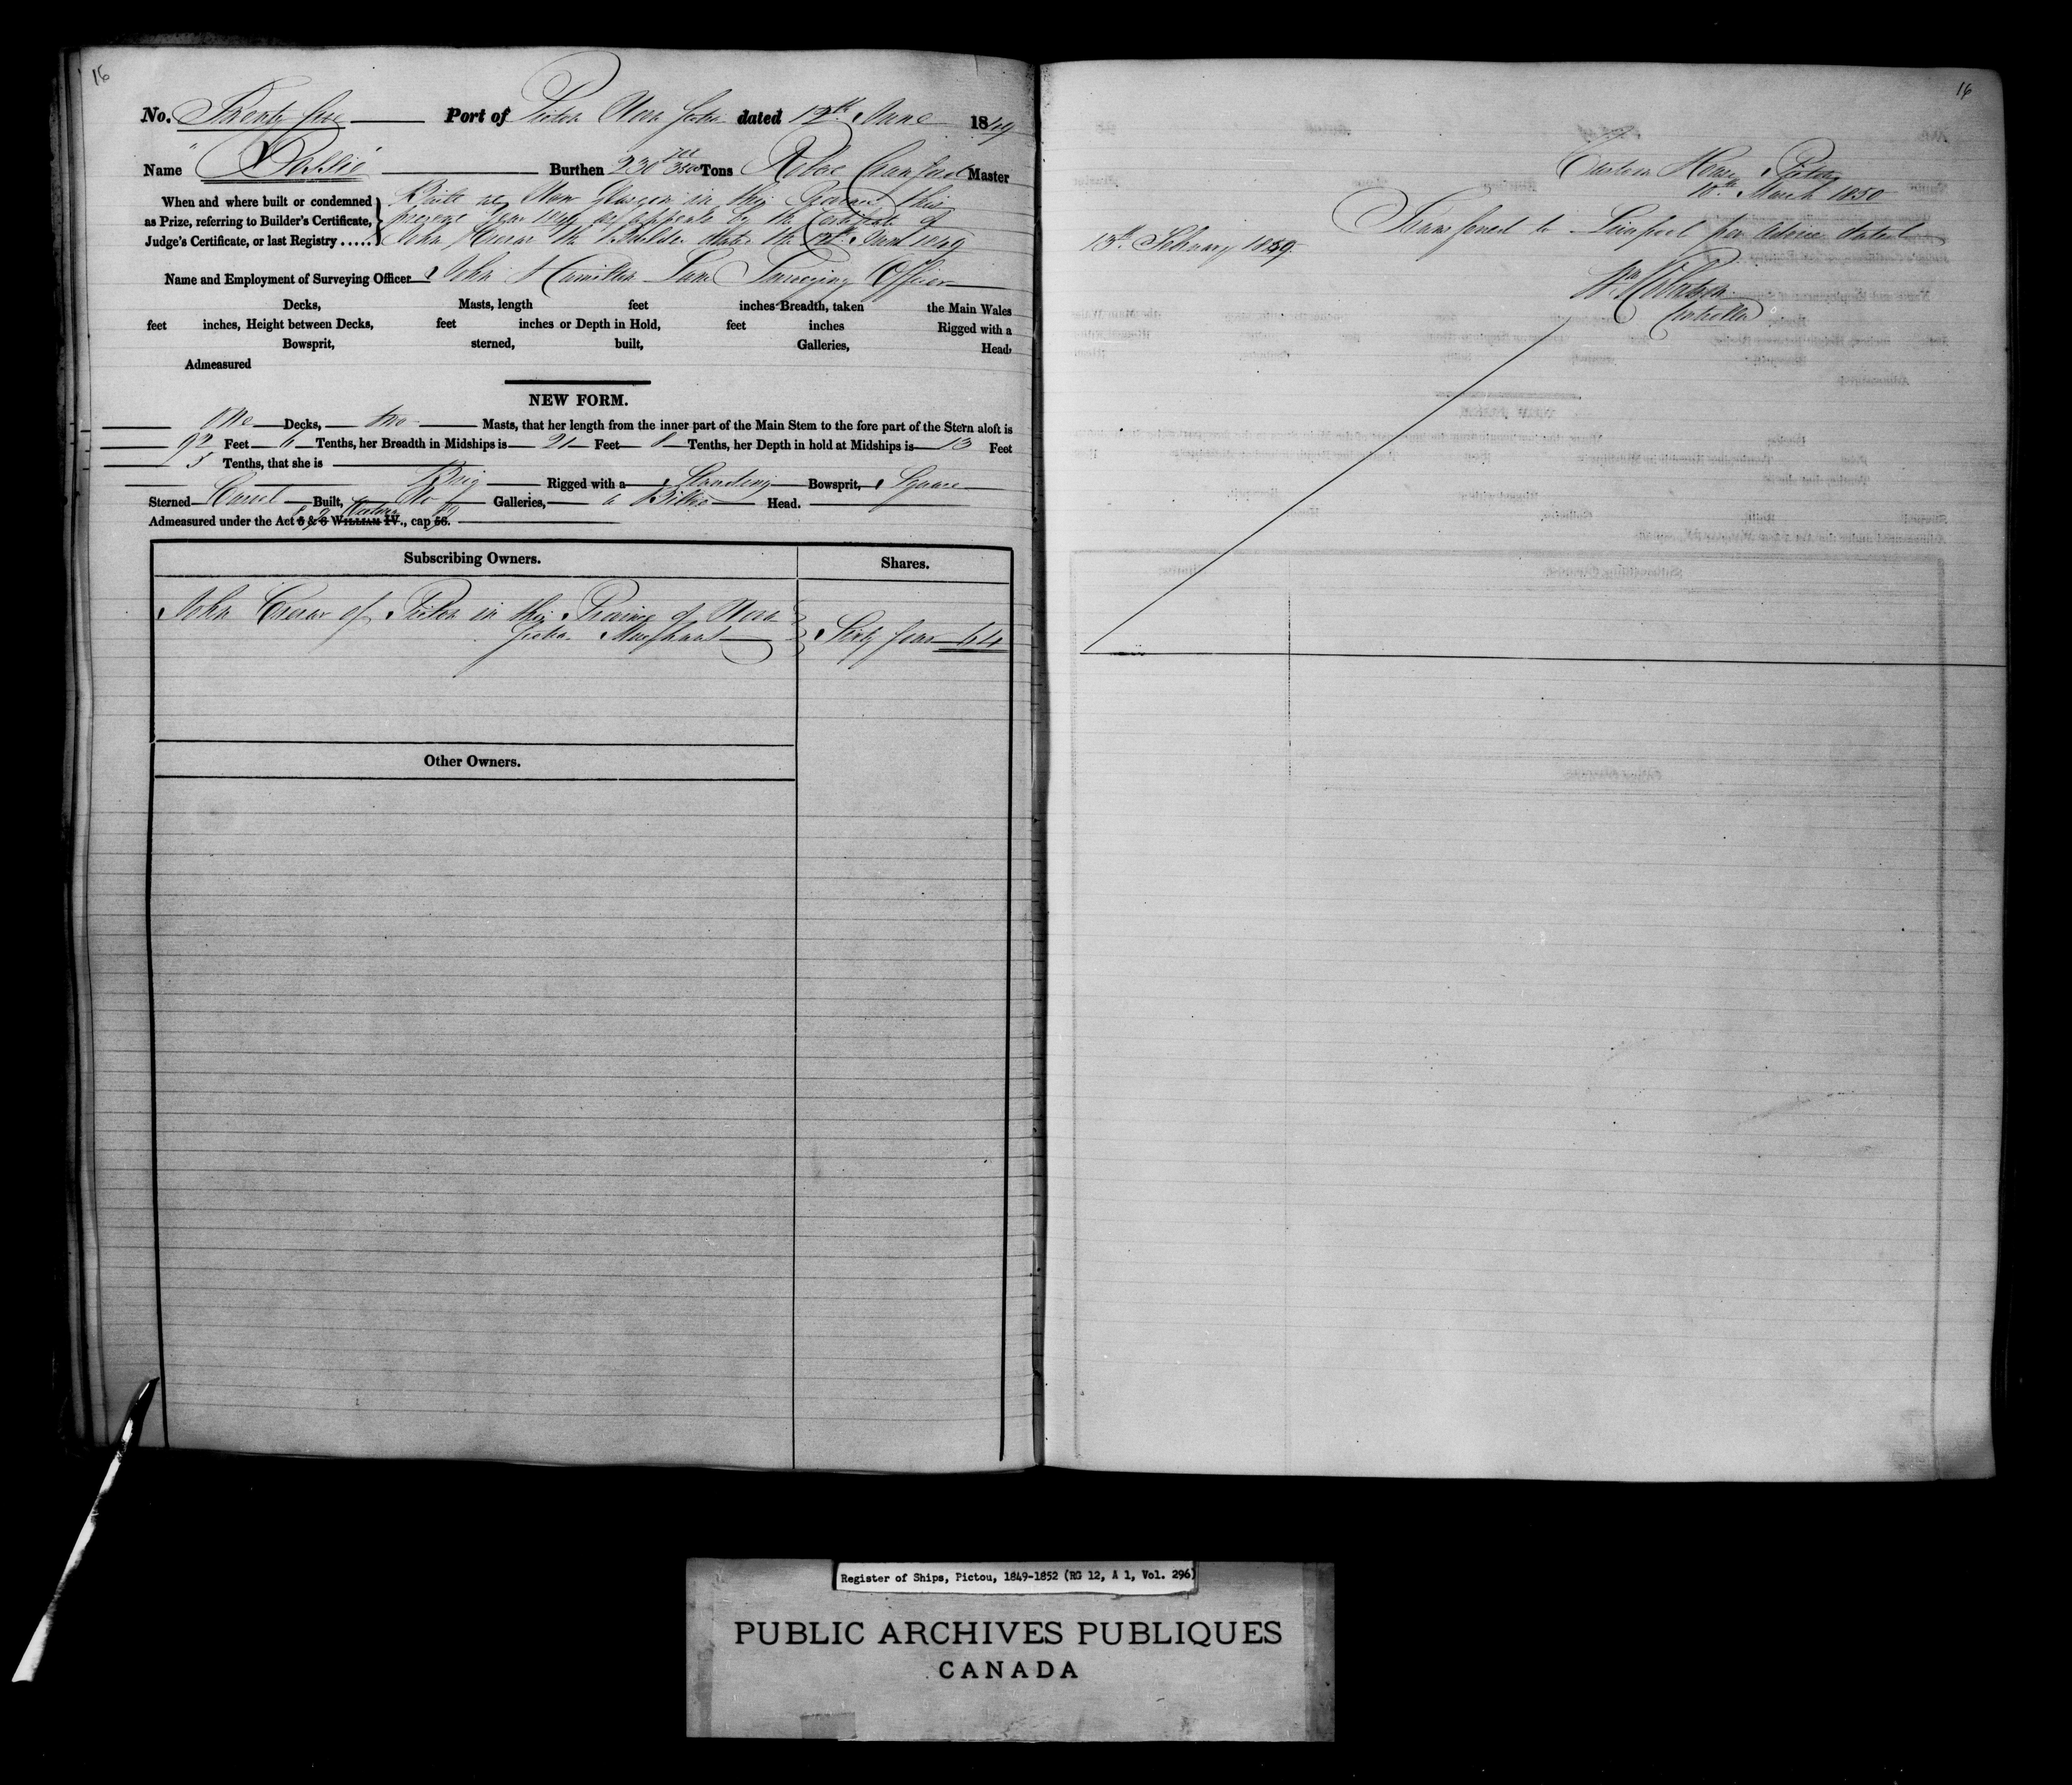 16
No. Twenty five Port of Pictou Nova Scotia dated 12th June 1849
Name "Dallie" Burthen 230 3500 Tons Robert Crawford Master
When and where built or condemned
as Prize, referring to Builder's Certificate,
Judge's Certificate, or last Registry .....
Built at New Glasgow in this Province this
present year 1849 as appears by the Certificate of
John Crerar the Builder dated the 12th June 1849
Name and Employment of Surveying Officer John Hamilton Lane Surveying Officer
Decks, Masts, length feet inches Breadth, taken the Main Wales
feet inches, Height between Decks, feet inches or Depth in Hold, feet inches Rigged with a
Bowsprit, sterned, built, Galleries, Head,
Admeasured
NEW FORM.
One Decks, two Masts, that her length from the inner part of the Main Stem to the fore part of the Stern aloft is
92 Feet 6 Tenths, her Breadth in Midships is 21 Feet 8 Tenths, her Depth in hold at Midships is 13 Feet
5 Tenths, that she is
Brig Rigged with a Standing Bowsprit, Square
Sterned Carvel Built, No Galleries, a Billet Head.
Admeasured under the Act 5 & 6 WILLIAM IV., cap 56.
8 9 Victoria
Subscribing Owners. Shares.
John Crerar of Pictou in this Province of Nova
Scotia Merchant Sixty four 64
Other Owners.
16
Custom House Pictou
18th March 1850
Transferred to Liverpool per Advice dated
13th February 1849.
Controller
Register of Ships, Pictou, 1849-1852 (RG 12, A 1, Vol. 296)
PUBLIC ARCHIVES PUBLIQUES
CANADA